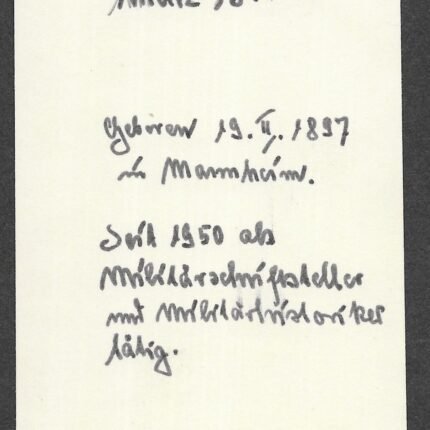 Geboren 19. II. 1897
in Mannheim.
Seit 1950 als
Militärschriftsteller
und Militärhistoriker
tätig.